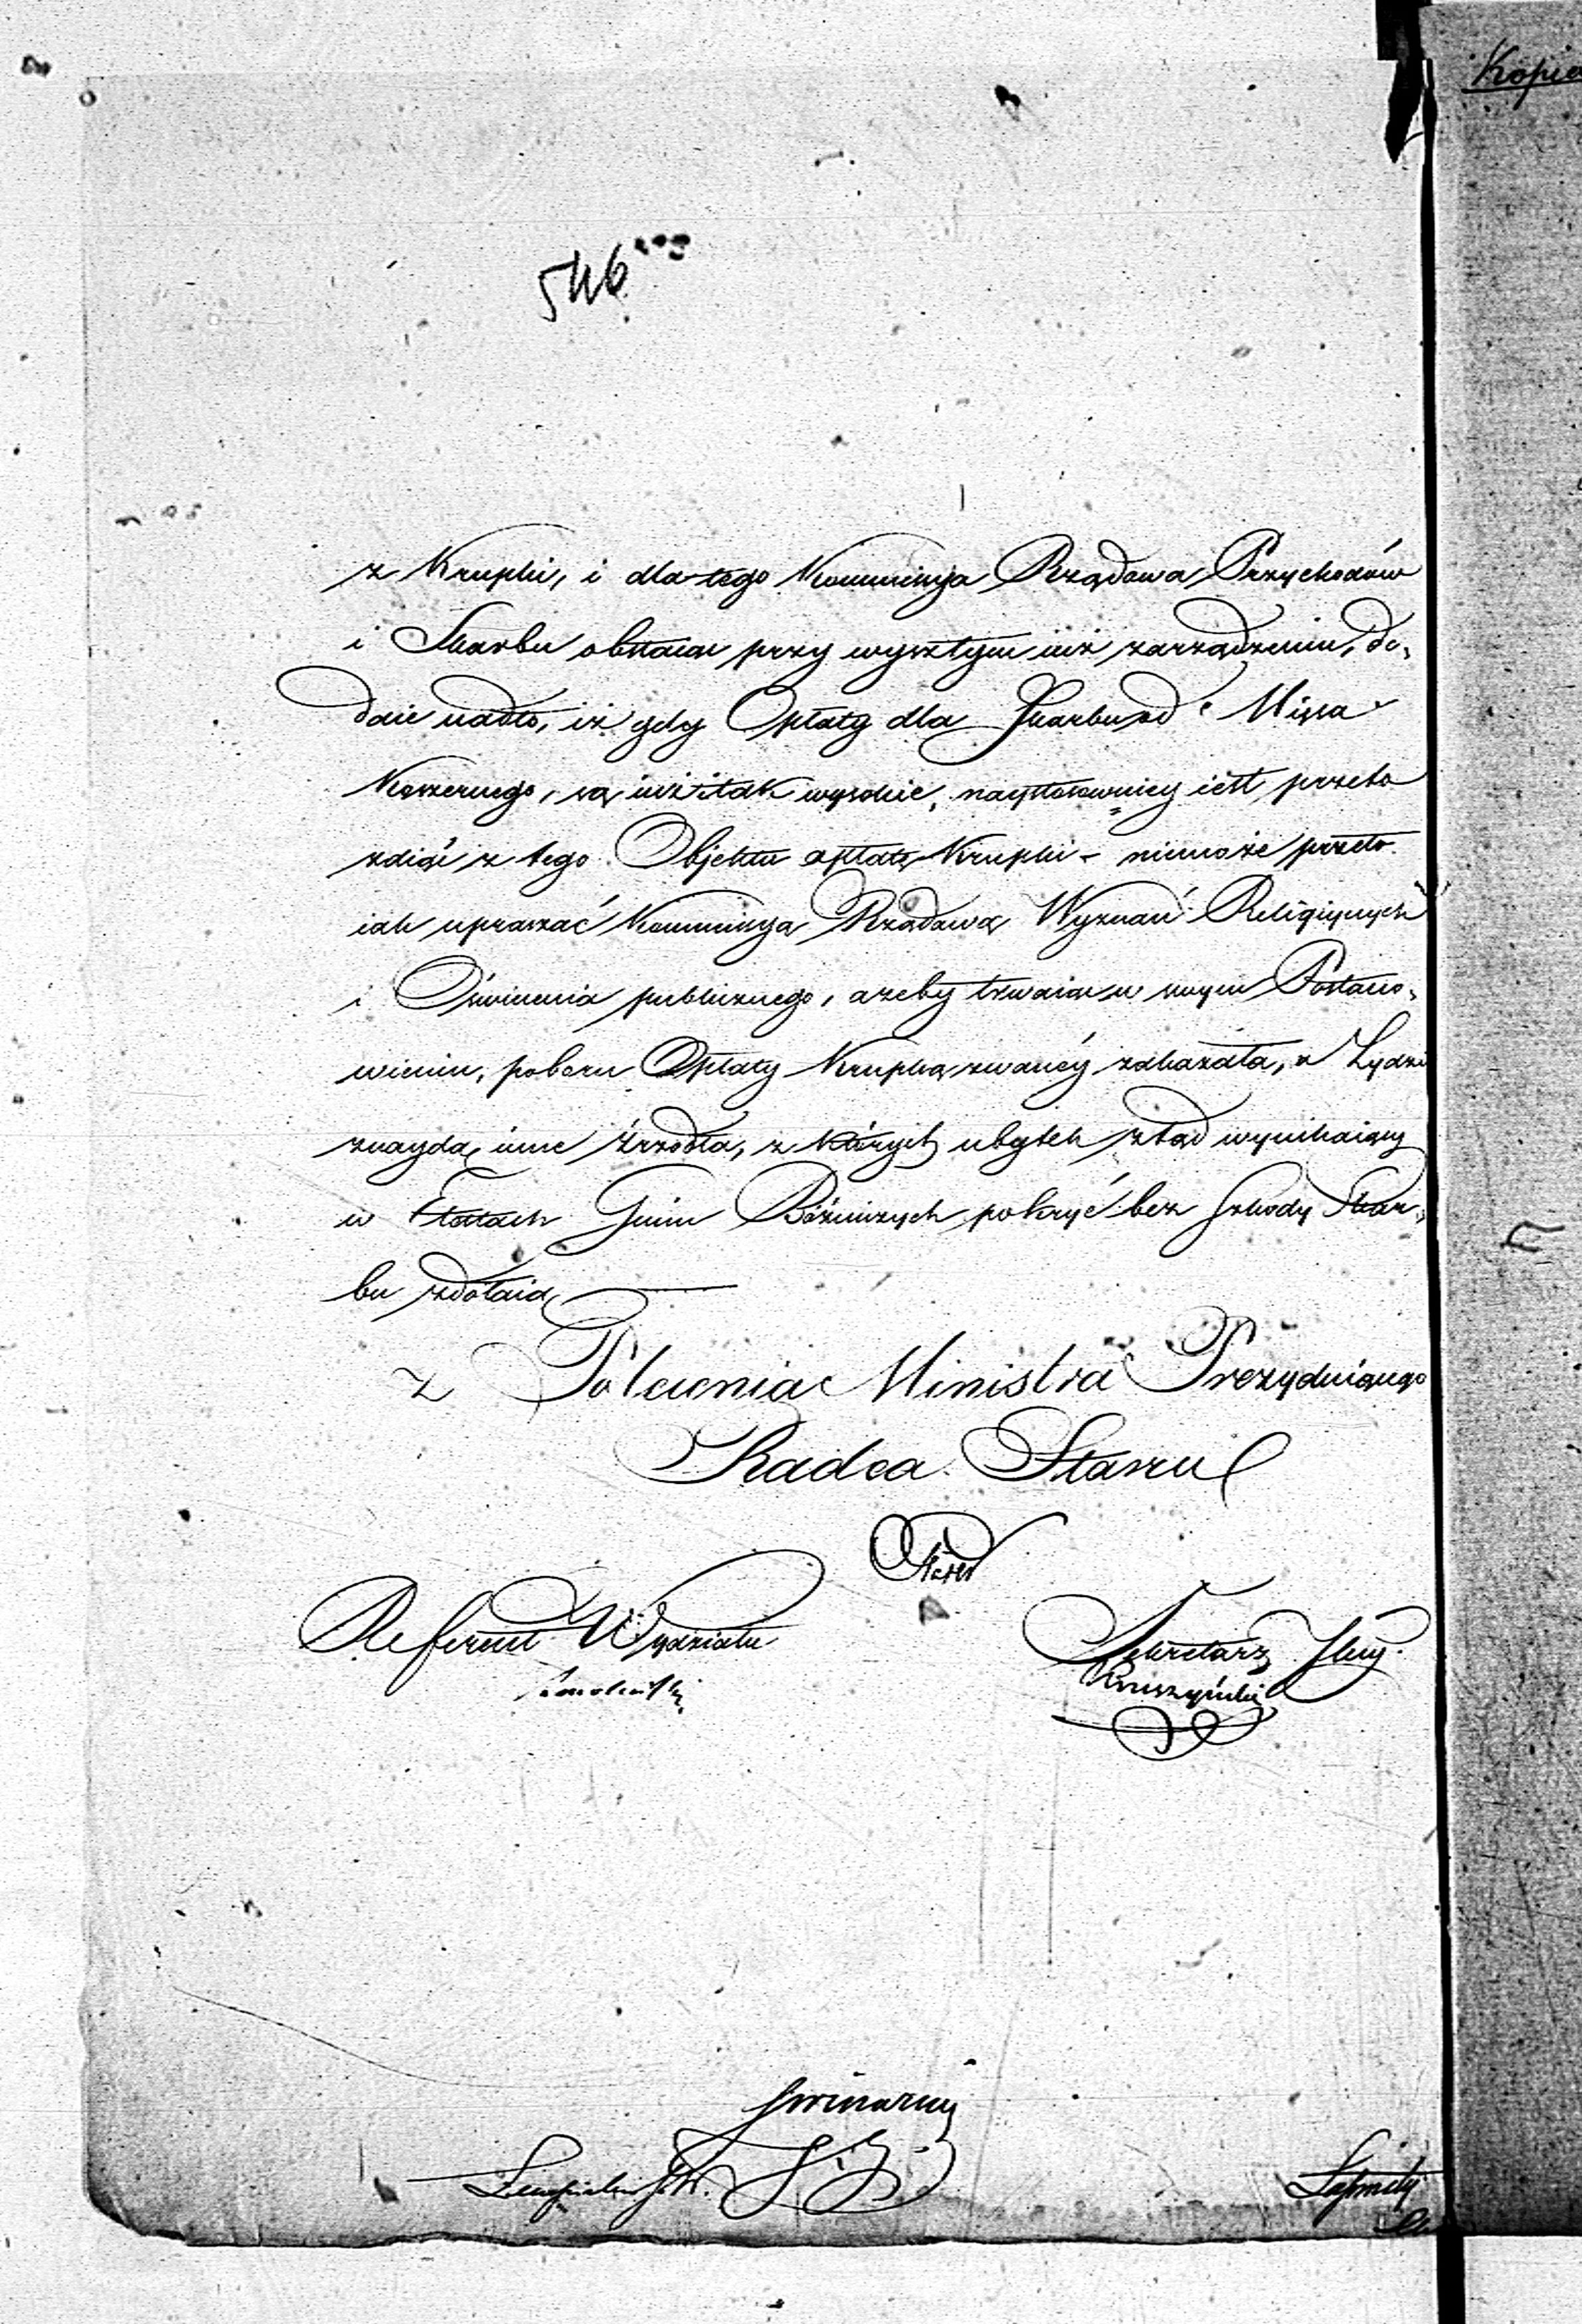 Kopia
546
z Krupki, i dla tego Kommissya Rządowa Przychodów
i Skarbu obstaiąc przy wyszłym iuż zarządzeniu, do,
daie nadto, iż gdy Opłaty dla Skarbu od Mięsa
Koszernego, są iuż i tak wysokie, naystosowniey iest przeto
zdiąć z tego Objektu opłatę Krupki - niemoże przeto
iak upraszać Kommissya Rządowa Wyznań Religiynych
i Oświecenia publicznego, ażeby trwaiąc w swym Postano,
wieniu, poboru Opłaty Krupką zwaney zakazała, a Żydzi
znaydą inne źrzodła, z których ubytek ztąd wynikaiący
w Etatach Gmin Bóżniczych pokryć bez szkody Skar,
bu zdołaią
z Polecenia Ministra Prezyduiącego
Radca Stanu
Referent Wydziału
Sekretarz Jlny.